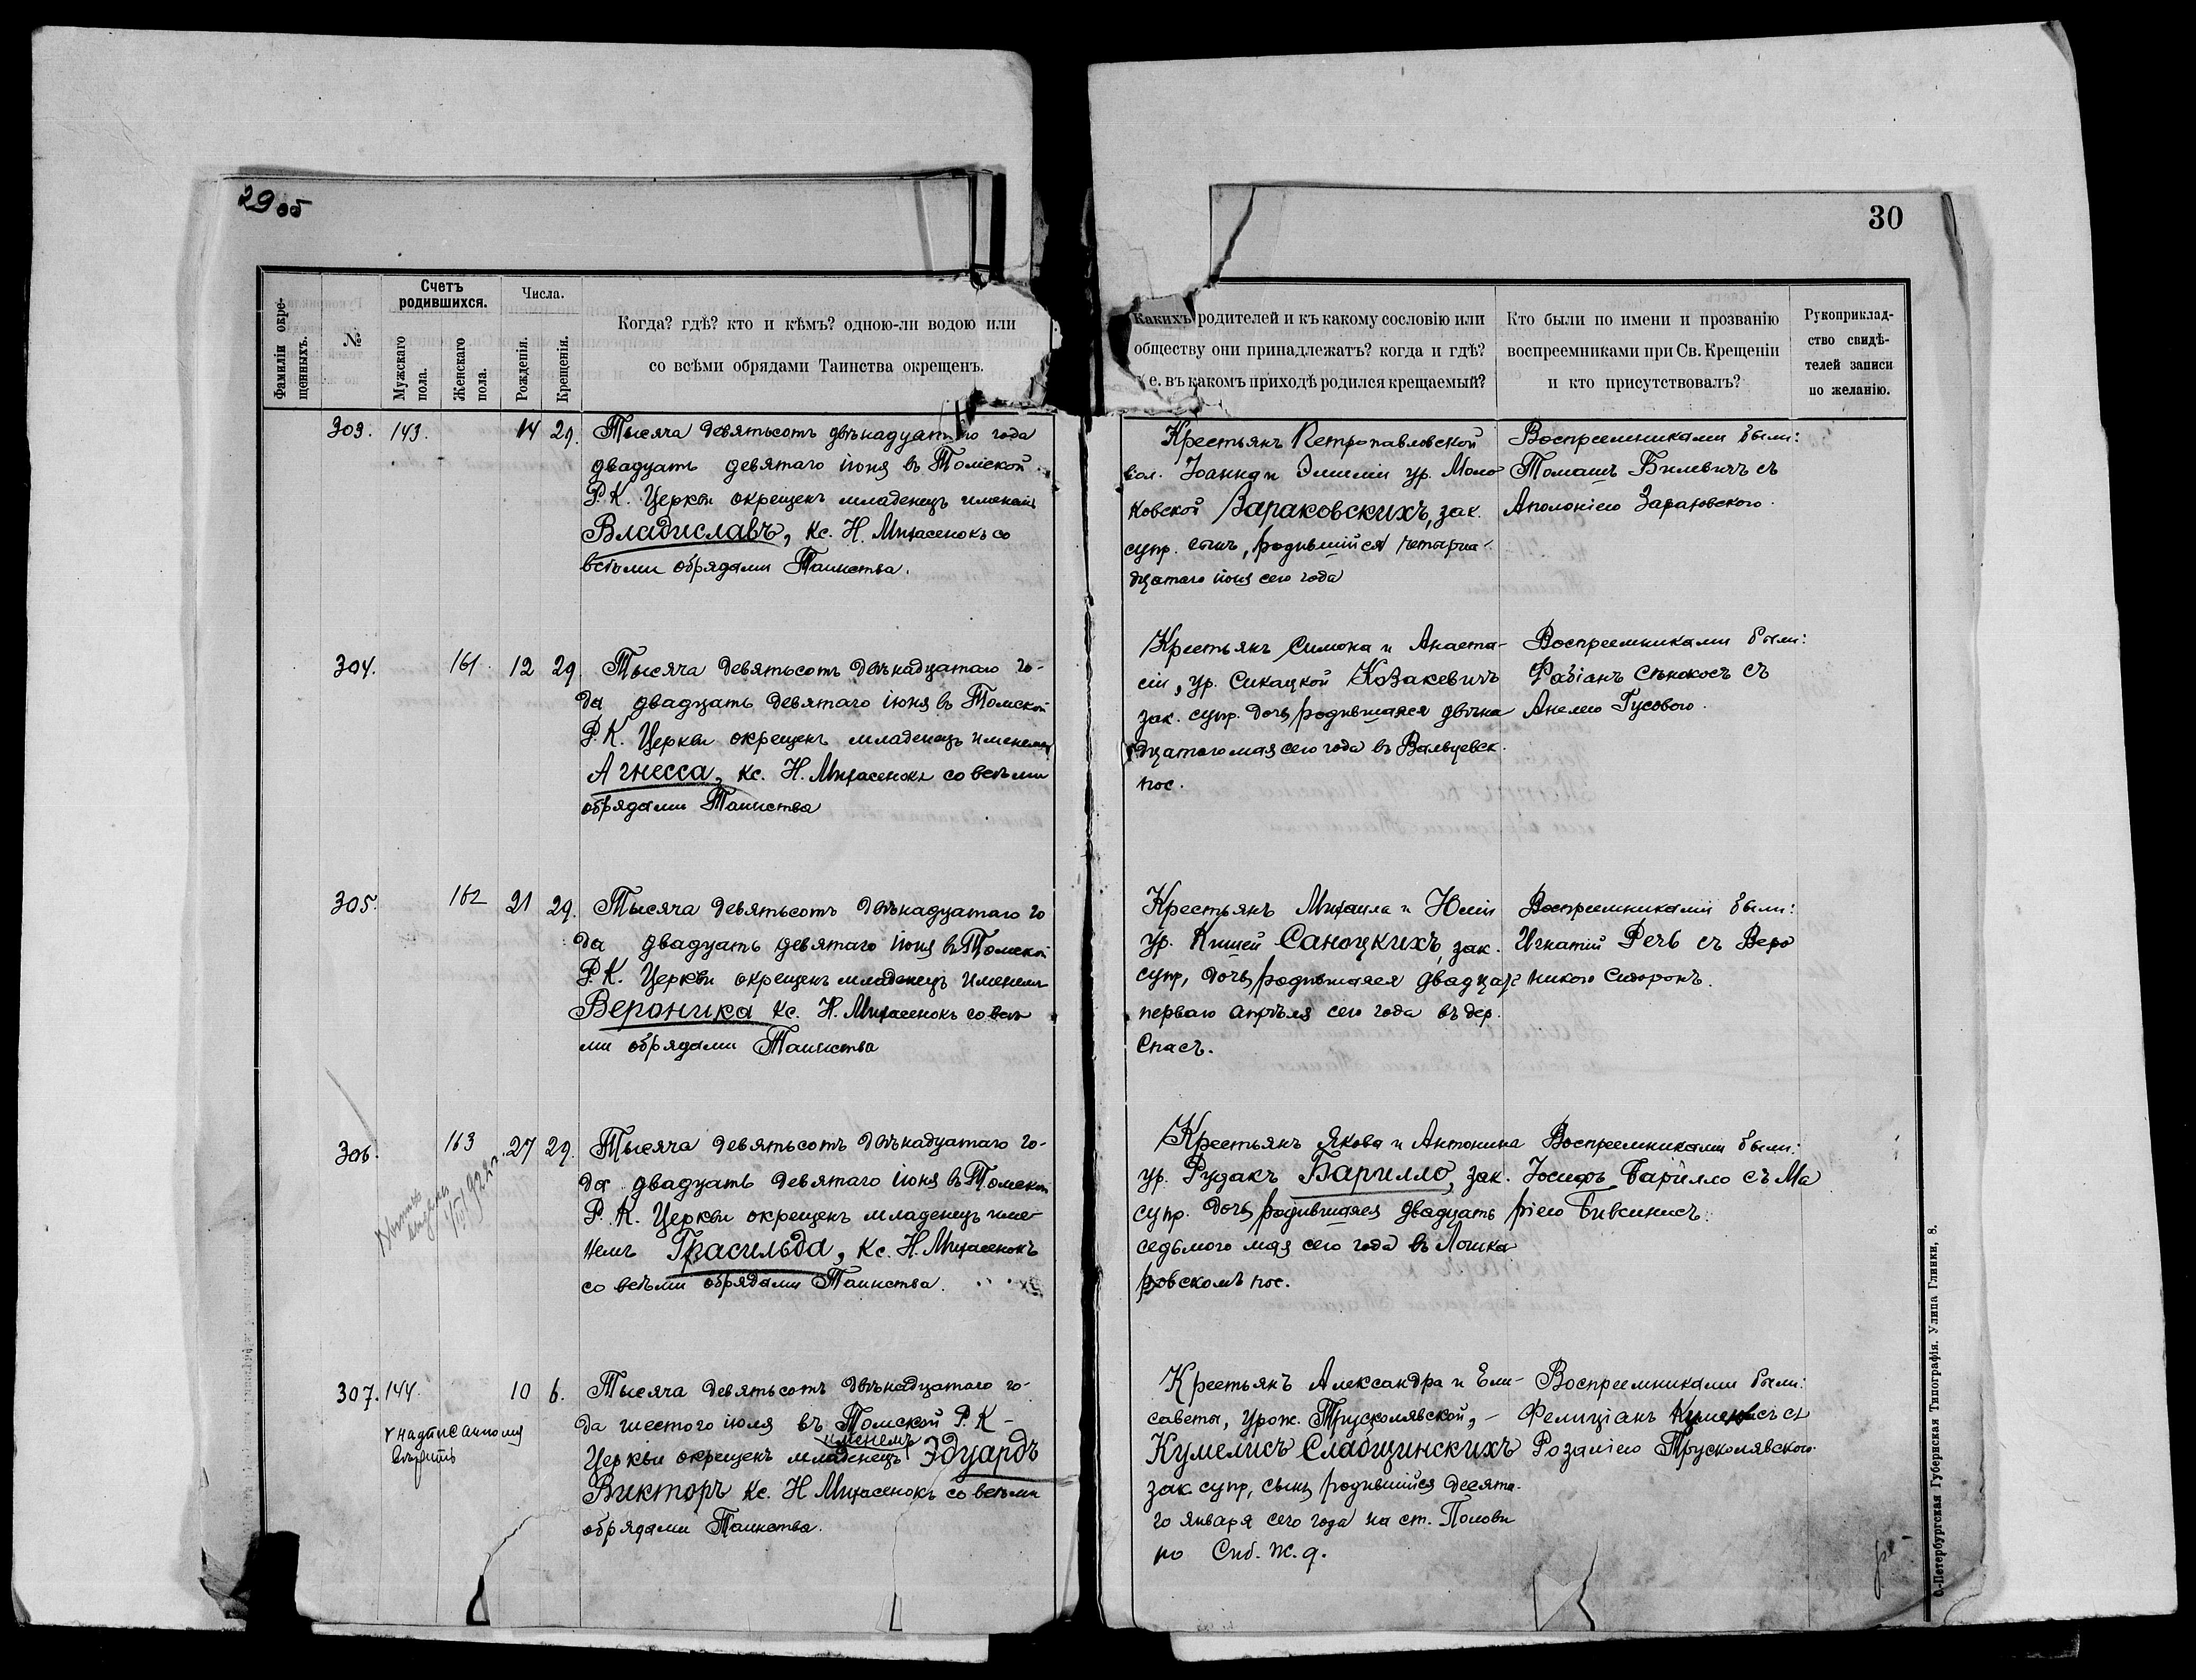 29 об
30
Фамиліи окре-
щенныхъ.
№
Счетъ
родившихся.
Мужскаго
пола.
Женскаго
пола.
Числа.
Рожденія.
Крещенія.
Когда? гдѣ? кто и кѣмъ? одною-ли водою или
со всѣми обрядами Таинства окрещенъ.
Какихъ родителей и къ какому сословію или
обществу они принадлежатъ? когда и гдѣ?
е. въ какомъ приходѣ родился крещаемый?
Кто были по имени и прозванію
воспреемниками при Св. Крещеніи
и кто присутствовалъ?
Рукоприклад-
ство свидѣ-
телей записи
по желанію.
303. 143. 14 29.
Тысяча девятьсотъ двѣнадцатаго года
двадцать девятаго іюня въ Томской
Р. К. Церкви окрещенъ младенецъ именемъ
Владиславъ, Кс. Н. Михасенокъ со
всѣми обрядами Таинства.
Крестьянъ Петропавловской
вол. Іоанна и Эмиліи ур. Моло
ковской Зараковскихъ, зак.
супр. сынъ, родившійся четырна-
дцатаго іюня сего года
Воспреемниками были:
Томашъ Билевичъ съ
Аполоніею
304. 161 12 29.
Тысяча девятьсотъ двѣнадцатаго го-
да двадцать девятаго іюня въ Томской
Р. К. Церкви окрещенъ младенецъ именемъ
Агнесса, Кс. Н. Михасенокъ со всѣми
обрядами Таинства
Крестьянъ Симона и Анаста-
сіи, ур. Сикацкой Козакевичъ
зак. супр. дочь, родившаяся двѣна
дцатаго мая сего года въ
пос.
Воспреемниками были:
Фабіанъ Сѣнокосъ съ
Анелею Гусовою.
305. 162 21 29.
Тысяча девятьсотъ двѣнадцатаго го
да двадцать девятаго іюня въ Томской
Р. К. Церкви окрещенъ младенецъ именемъ
Вероника Кс. Н. Михасенокъ со всѣ
ми обрядами Таинства
Крестьянъ Михаила и Юліи
ур. Саноцкихъ, зак.
супр, дочь, родившаяся двадцать
перваго апрѣля сего года въ дер.
Спасъ.
Воспреемниками были:
Игнатій Речь съ Веро
никою
306. 163 27 29.
Тысяча девятьсотъ двѣнадцатаго го-
да двадцать девятаго іюня въ Томской
Р. К. Церкви окрещенъ младенецъ име-
немъ Грасильда, Кс. Н. Михасенокъ
со всѣми обрядами Таинства.
Крестьянъ Якова и Антонина
ур. Рудакъ Барилло, зак.
супр. дочь, родившаяся двадцать
седьмого мая сего года въ Лошка
ровскомъ пос.
Воспреемниками были:
Іосифъ Барилло съ Ма
ріею
307. 144. 10 6.
надписанному
вѣрить
Тысяча девятьсотъ двѣнадцатаго го-
да шестого іюля въ Томской Р. К-
именемъ
Церкви окрещенъ младенецъ Эдуардъ
Викторъ Кс. Н Михасенокъ со всѣми
обрядами Таинства.
Крестьянъ Александра и Ели-
саветы, урож. Трусколявской, -
Кумелисъ Сладщинскихъ
зак супр, сынъ, родившійся десята-
го января сего года на ст. Полови
но Сиб. ж. д.
Воспреемниками были:
Фелиціанъ Кумелисъ съ
Розаліею Трусколявскою.
С.-Петербургская Губернская Типографія. Улица Глинки, 8.